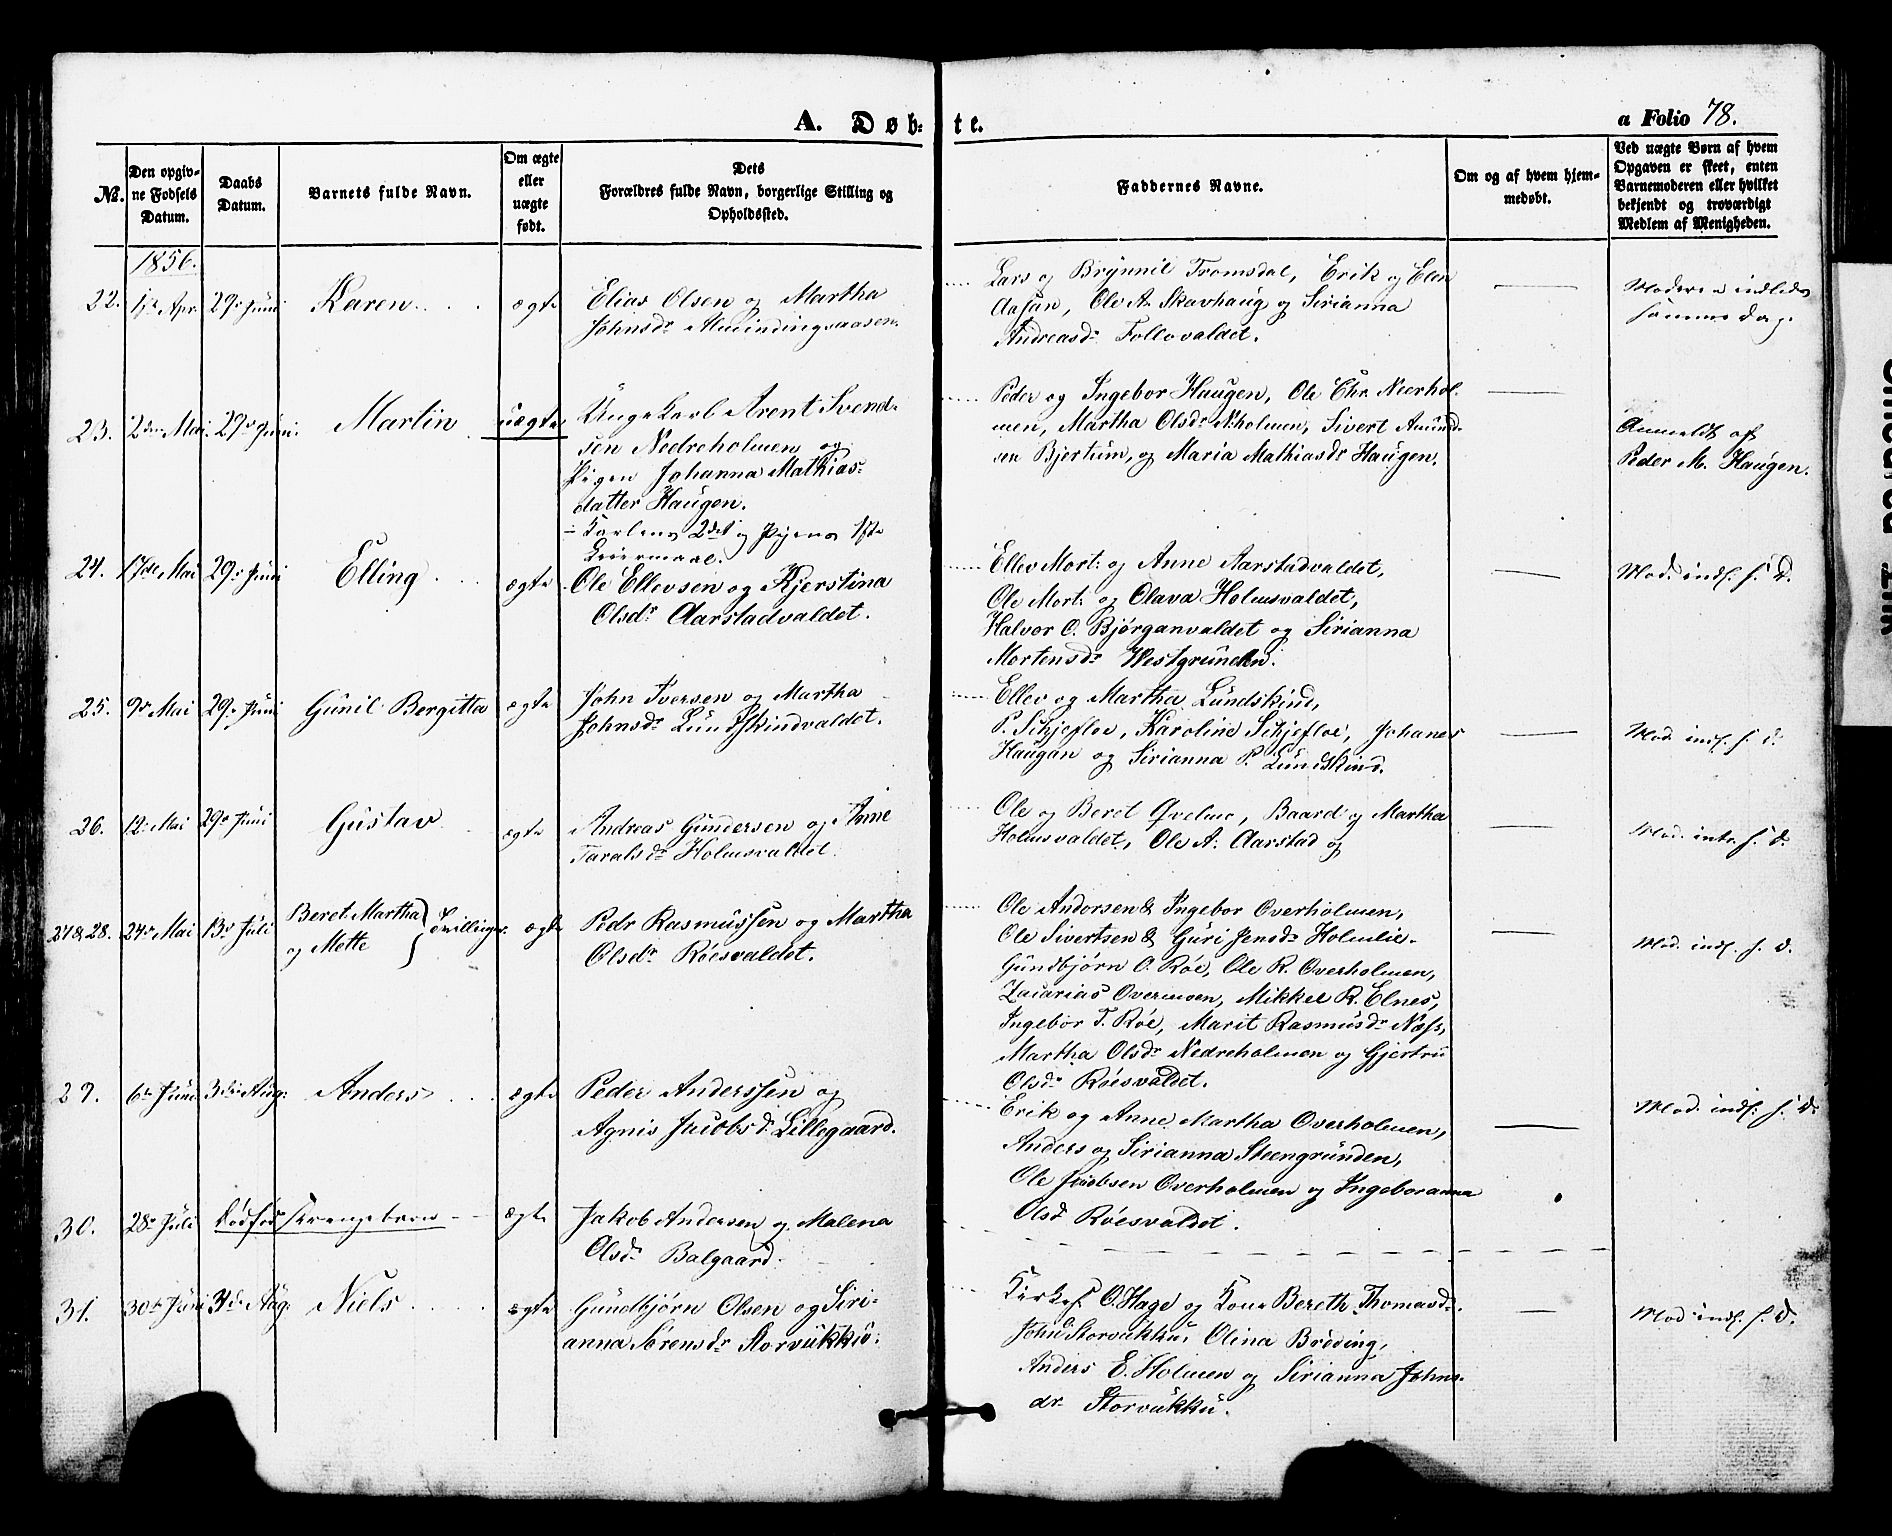 A. Døb-te.
a Folio 78.
No.
Den opgiv-
ne Fødsels
Datum.
Daabs
Datum.
Barnets fulde Navn.
Om ægte
eller
uægte
født.
Dets
Forældres fulde Navn, borgerlige Stilling og
Opholdssted.
Faddernes Navne.
Om og af hvem hjem-
medøbt.
Ved uægte Børn af hvem
Opgaven er skeet, enten
Barnemoderen eller hvilket
bekjendt og troværdigt
Medlem af Menigheden.
1856.
22. Apr. 29de Juni Karen ægte
Elias Olsen og Martha
Johnsdr Almindingsaasen.
Lars og Brynnil Tromsdal, Erik og Elen
Aasan, Ole A. Skavhaug og Sirianna
Andreasdr Follovaldet.
Moderen indledes
samme Dag.
23. 2den Mai. 29de Juni. Martin uægte
Ungekarl Arent Svend-
sen Nedreholmen og
Pigen Johanna Mathias-
datter Haugen.
- Karlens 2det og Pigens 1ste
Leiermaal.
Peder og Ingebor Haugen, Ole Chr. Neerhol-
men, Martha Olsdr N.holmen, Sivert Amund-
sen Bjertum, og Maria Mathiasdr Haugen.
Anmeldt af
Peder M. Haugen.
24. 17de Mai 29de Juni Elling ægte
Ole Ellevsen og Kjerstina
Olsdr Aarstadvaldet.
Ellev Mort: og Anne Aarstadvaldet,
Ole Mort: og Olava Holmsvaldet,
Halvor O. Bjørganvaldet og Sirianna
Mortensdr Westgrunden.
Mod. indl. s. D.
25. 9de Mai 29de Juni Gunil Bergitta ægte
John Iversen og Martha
Johnsdr Lundskindvaldet.
Ellev og Martha Lundskind,
P. Skjefloe, Karoline Skjefloe, Johanes
Haugan og Sirianna P. Lundskind.
Mod. indl. s. D.
26. 12. Mai 29de Juni Gustav ægte
Andreas Gundersen og Anne
Taralsdr Holmsvaldet.
Ole og Beret Qvelmo, Baard og Martha
Holmsvaldet, Ole A. Aarstad og
Mod. intr. s. D.
27&28. 24de Mai 13de Juli Beret Martha
og Mette } Tvillinger ægte
Pedr Rasmussen og Martha
Olsdr Röesvaldet.
Ole Andersen & Ingebor Overholmen,
Ole Sivertsen & Guri Jensdr Holmlie.
Gundbjørn O. Röe, Ole R. Overholmen,
Zacarias Overmoen, Mikkel R. Elnes,
Ingebor T. Röe, Marit Rasmusdr Næss,
Martha Olsdr Nedreholmen og Gjertru
Olsdr Röesvaldet.
Mod. indl. s. D.
29. 6te Juni 3die Aug. Anders ægte
Peder Anderssen og
Agnis Jacobsd. Lillegaard.
Erik og Anne Martha Overholmen,
Anders og Sirianna Steengrunden,
Ole Jacobsen Overholmen og Ingeboranna
Olsd Röesvaldet.
Mod. indl. s. D.
30. 28de Juli Dødfødt Drengebarn ægte
Jakob Andersen og Malena
Olsdr Balgaard.
31. 30te Juni 3die Aug. Niels ægte
Gundbjørn Olsen og Siri-
anna Sörensdr Storvukku.
Kirkes. O. Hage og Kone Bereth Thomasdr.
John Storvukku, Olina Breding,
Anders E. Holmen og Sirianna Johns-
dr. Storvukku.
Mod indl. s. D.